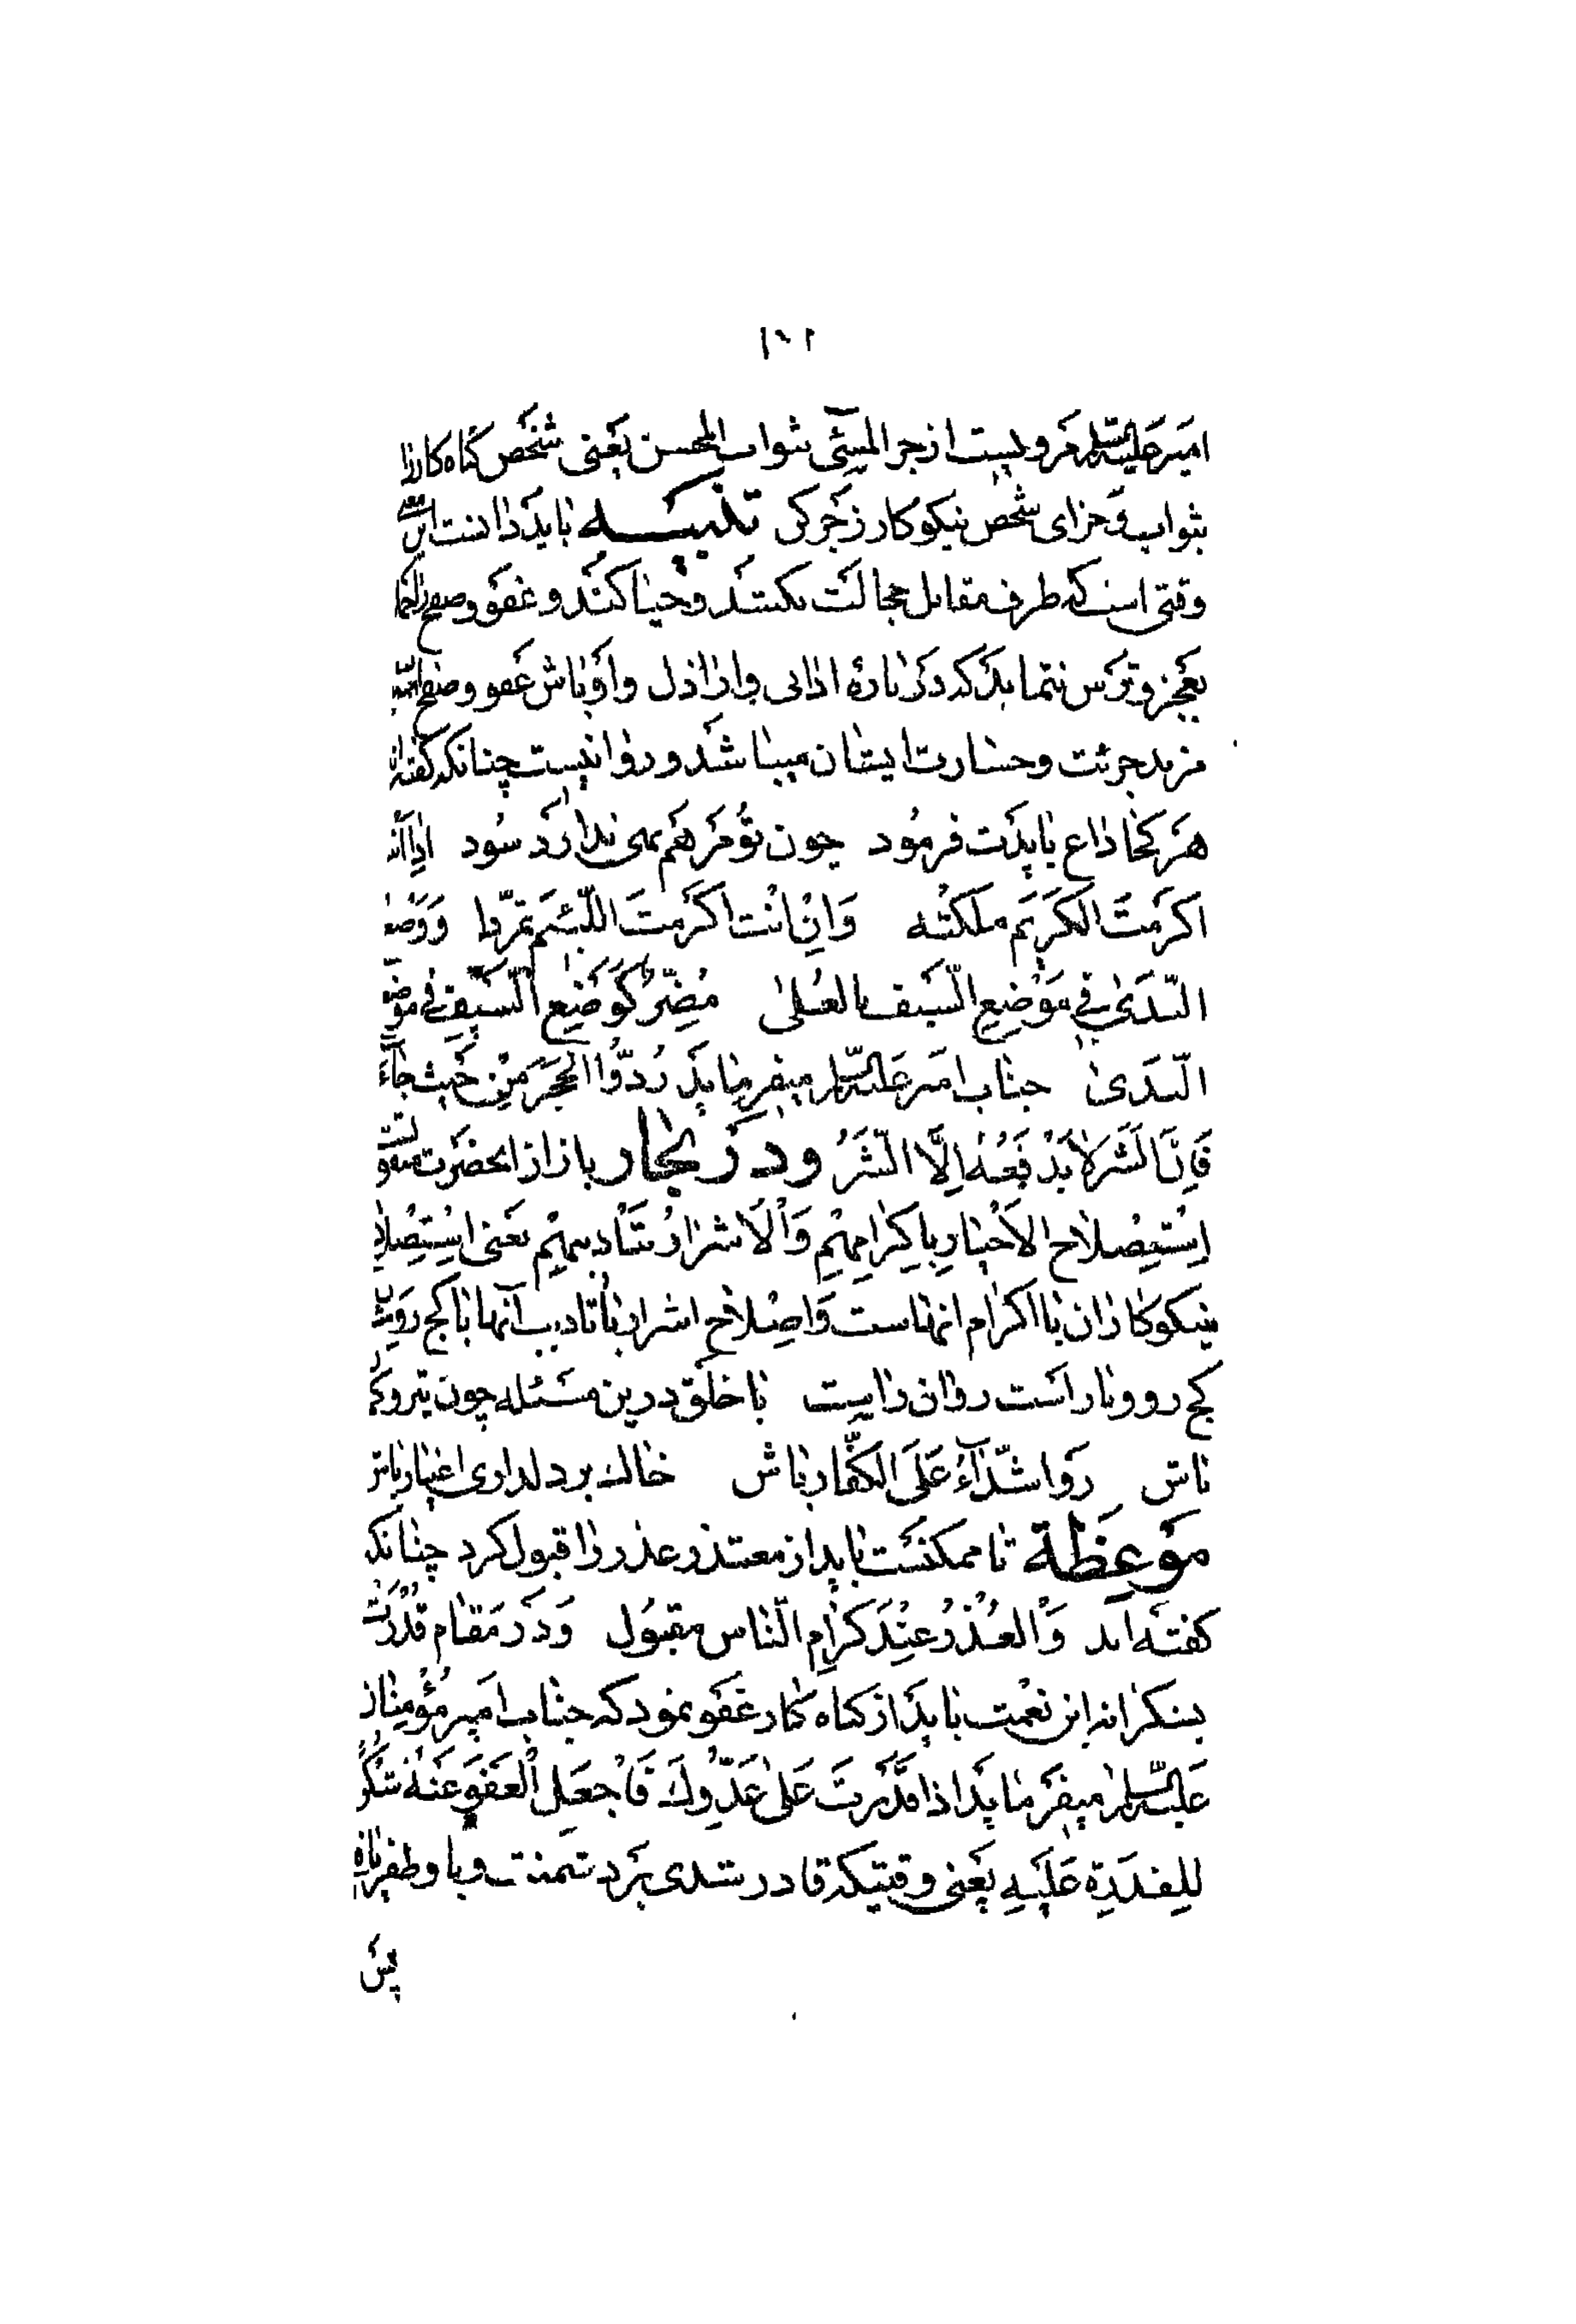 ۱۰۲
امیر علیه‌السلم مرویست ازجر المسئی بثواب المحسن یعنی شخص کناه کار را
بثواب و جزای شخص نیکوکار زجر کن تنبیـــه باید دانست این
وقتی است که طرف مقابل خجالت بکشد و حیا کند و عفو و صفح را حمل
بعجز و ترس ننماید که درباره ادانی و اراذل و اوباش عفو و صفح
مزید جرئت و جسارت ایشان میباشد و روا نیست چنانکه گفته‌اند
هر کجا داغ بایدت فرمود چون تو مرهم نهی ندارد سود اذا انت
اکرمت الکریم ملکته وَاِن انت اکرمتَ اللّئیم تمرّدا وَوَضع
النّدیٰ فی مَوضِعِ السّیف بالعُلیٰ مُضِرّ کَوَضعِ السّیف فی موضع
النّدیٰ جناب امیر علیه‌السّلم میفرماید رُدّوا الحَجَرَ مِن حَیث جآءَ
فَاِنَّ الشّرَ لا یَدْفَعُهُ اِلّا الشَّرُ و در بحار باز از انحضرت
اِسْتِصْلاح الاَخیارِ بِاِکرامِهِم وَالْاَشرارُ بتَادیبهِم یعنی استصلاح
نیکوکاران با اکرام انهاست وَ اصلاح اشرار با تادیب آنها با کج روش
کج رو و با راست روان راست با خلق درین مسئله چون تیر و کمان
باش رَو اشدّآءُ عَلَی الکفّار باش خاک بر دلداری اغیار باش
مَوعِظَة تا ممکنست باید از معتذر عذر را قبول کرد چنانکه
کفته‌اند وَالعُذْرُ عِنْدَ کرامِ النّاس مقبَول وَ دَر مَقام قُدرَت
بشکرانه این نعمت باید از کناه کار عَفو نمود که جناب امیر مؤمنان
عَلیه‌السّلم میفرماید اذا قَدَرتَ عَلیٰ عَدُوّکَ فَاجعَلِ العَفوَ عَنهُ شُکراً
لِلقُدرَةِ عَلَیهِ یعنی وقتیکه قادر شدی بر دشمنت و با و ظفر یافتی
پس